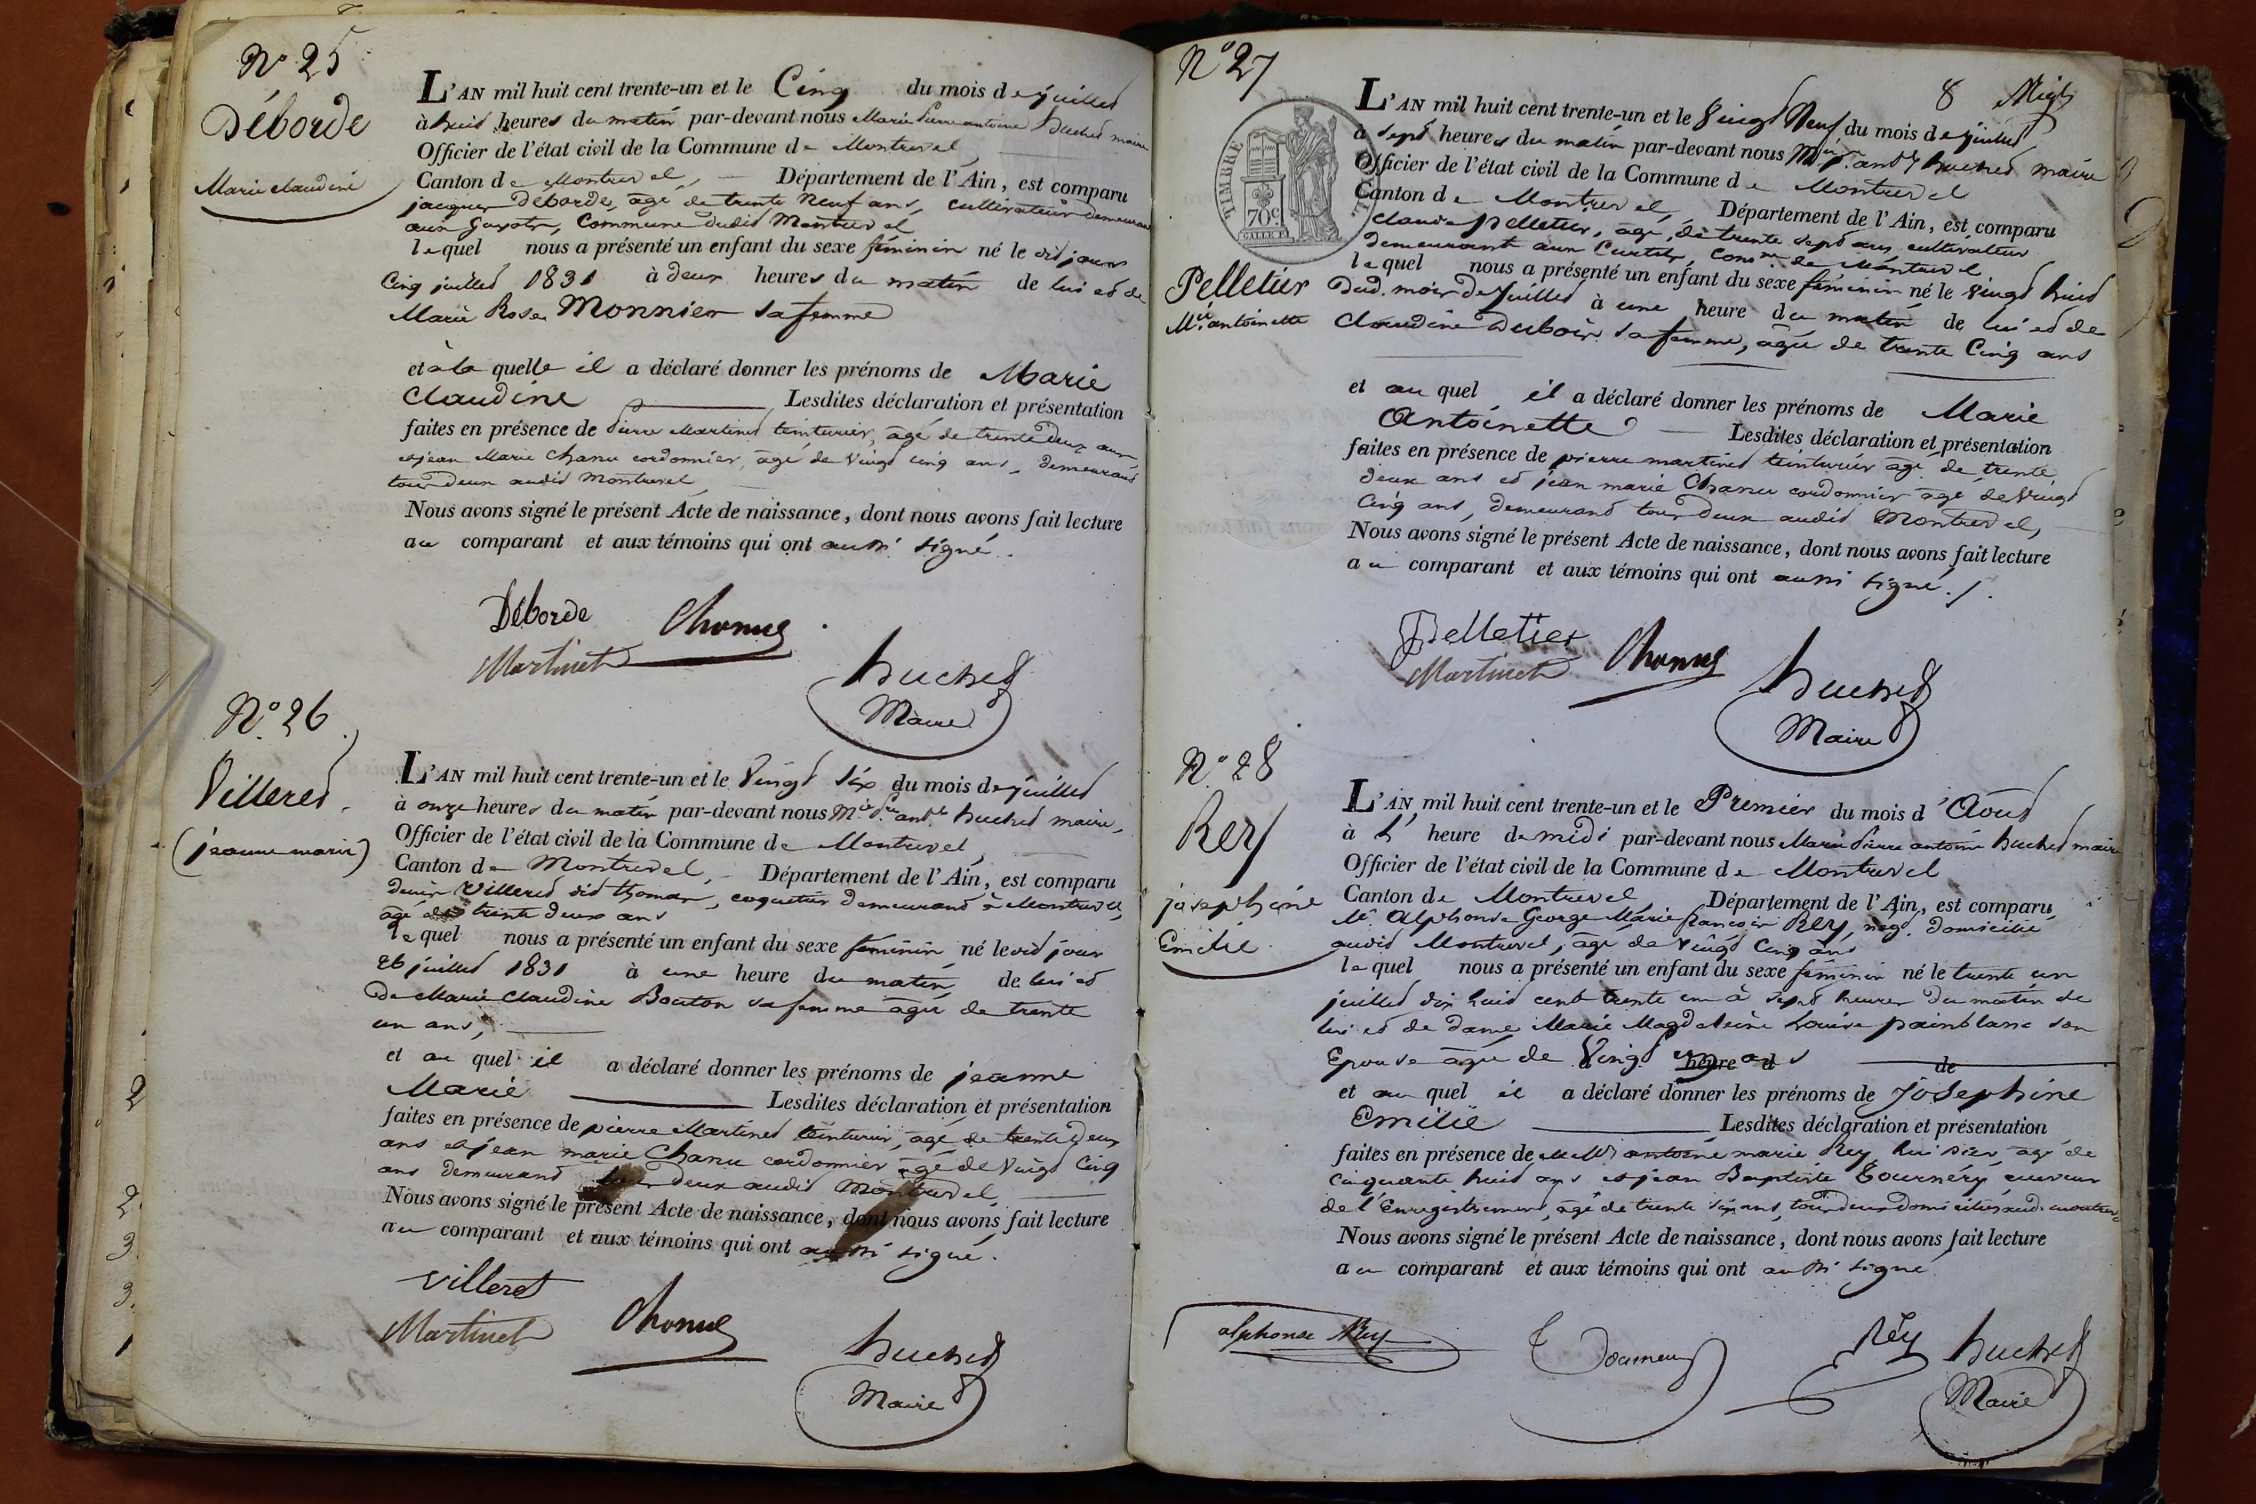 N° 25
Déborde
Marie Claudine
L'AN mil huit cent trente-un et le Cinq du mois de juillet
à huit heures du matin par-devant nous Marie Pierre antoine huchet maire
Officier de l'état civil de la Commune de Montrevel,
Canton de Montrevel, Département de l'Ain, est comparu
jacques Déborde, âgé de trente Neuf ans, cultivateur demeurant
aux, Commune dudit Montrevel
lequel nous a présenté un enfant du sexe féminin né le dit jour
Cinq juillet 1831 à deux heures du matin de lui et de
Marie Rose Monnier sa femme
et à la quelle il a déclaré donner les prénoms de Marie
Claudine Lesdites déclaration et présentation
faites en présence de Pierre Martinet teinturier, âgé de trente deux ans
et jean Marie Chanu cordonnier, âgé de Vingt cinq ans, demeurant
tous deux audit Montrevel,
Nous avons signé le présent Acte de naissance, dont nous avons fait lecture
au comparant et aux témoins qui ont aussi signé.
Déborde Chanu
Martinet
huchet
Maire
N° 26
Villeret
(jeanne marie)
L'AN mil huit cent trente-un et le Vingt six du mois de juillet
à onze heures du matin par-devant nous Mie Pre antne huchet maire,
Officier de l'état civil de la Commune de Montrevel,
Canton de Montrevel, Département de l'Ain, est comparu
denis Villeret dit thomas, coquetier demeurant à Montrevel,
âgé de trente deux ans
lequel nous a présenté un enfant du sexe féminin né ledit jour
26 juillet 1831 à une heure du matin, de lui et
de Marie Claudine Bouton sa femme âgée de trente
un ans,
et au quel il a déclaré donner les prénoms de jeanne
Marie Lesdites déclaration et présentation
faites en présence de pierre Martinet teinturier, âgé de trente deux
ans et jean marie Chanu cordonnier âgé de Vingt Cinq
ans demeurant tous deux audit Montrevel,
Nous avons signé le présent Acte de naissance, dont nous avons fait lecture
au comparant et aux témoins qui ont aussi signé.
Villeret
Martinet Chanu
huchet
Maire
N° 27
8
TIMBRE ROYAL
70c
Pelletier
Mie antoinette
L'AN mil huit cent trente-un et le Vingt Neuf du mois de juillet
à sept heures du matin par-devant nous Mie Pre antne huchet maire
Officier de l'état civil de la Commune de Montrevel
Canton de Montrevel, Département de l'Ain, est comparu
Claude pelletier, âgé, de trente sept ans, cultivateur
demeurant aux Curtils, Comne de Montrevel
lequel nous a présenté un enfant du sexe féminin né le Vingt huit
Dud. mois de Juillet à une heure du matin de lui et de
Claudine Dubois sa femme, âgée de trente Cinq ans
et au quel il a déclaré donner les prénoms de Marie
Antoinette Lesdites déclaration et présentation
faites en présence de pierre martinet teinturier âgé de trente
deux ans et jean marie Chanu cordonnier âgé de Vingt
Cinq ans, demeurant tous deux audit Montrevel,
Nous avons signé le présent Acte de naissance, dont nous avons fait lecture
au comparant et aux témoins qui ont aussi signé./.
Pelletier
Martinet Chanu
huchet
Maire
N° 28
Rey
josephine
Emilie
L'AN mil huit cent trente-un et le Premier du mois d'Aout
à L' heure de midi par-devant nous Marie Pierre antoine huchet maire
Officier de l'état civil de la Commune de Montrevel
Canton de Montrevel, Département de l'Ain, est comparu
Mr Alphonse George Marie françois Rey, négt. domicilié
audit Montrevel, âgé de Vingt Cinq ans
lequel nous a présenté un enfant du sexe féminin né le trente un
juillet dix huit cent trente un à sept heures du matin de
lui et de dame Marie Magdeleine Louise painblanc son
Epouse âgée de Vingt ans
heure d de
et au quel il a déclaré donner les prénoms de Josephine
Emilie Lesdites déclaration et présentation
faites en présence de MMrs antoine marie Rey, huissier, âgé de
cinquante huit ans et jean Baptiste Tournéry, receveur
de l'Enregistrement, âgé de trente six ans, tous deux domiciliés aud. montrevel
Nous avons signé le présent Acte de naissance, dont nous avons fait lecture
au comparant et aux témoins qui ont aussi signé
alphonse Rey Rey huchet
Maire